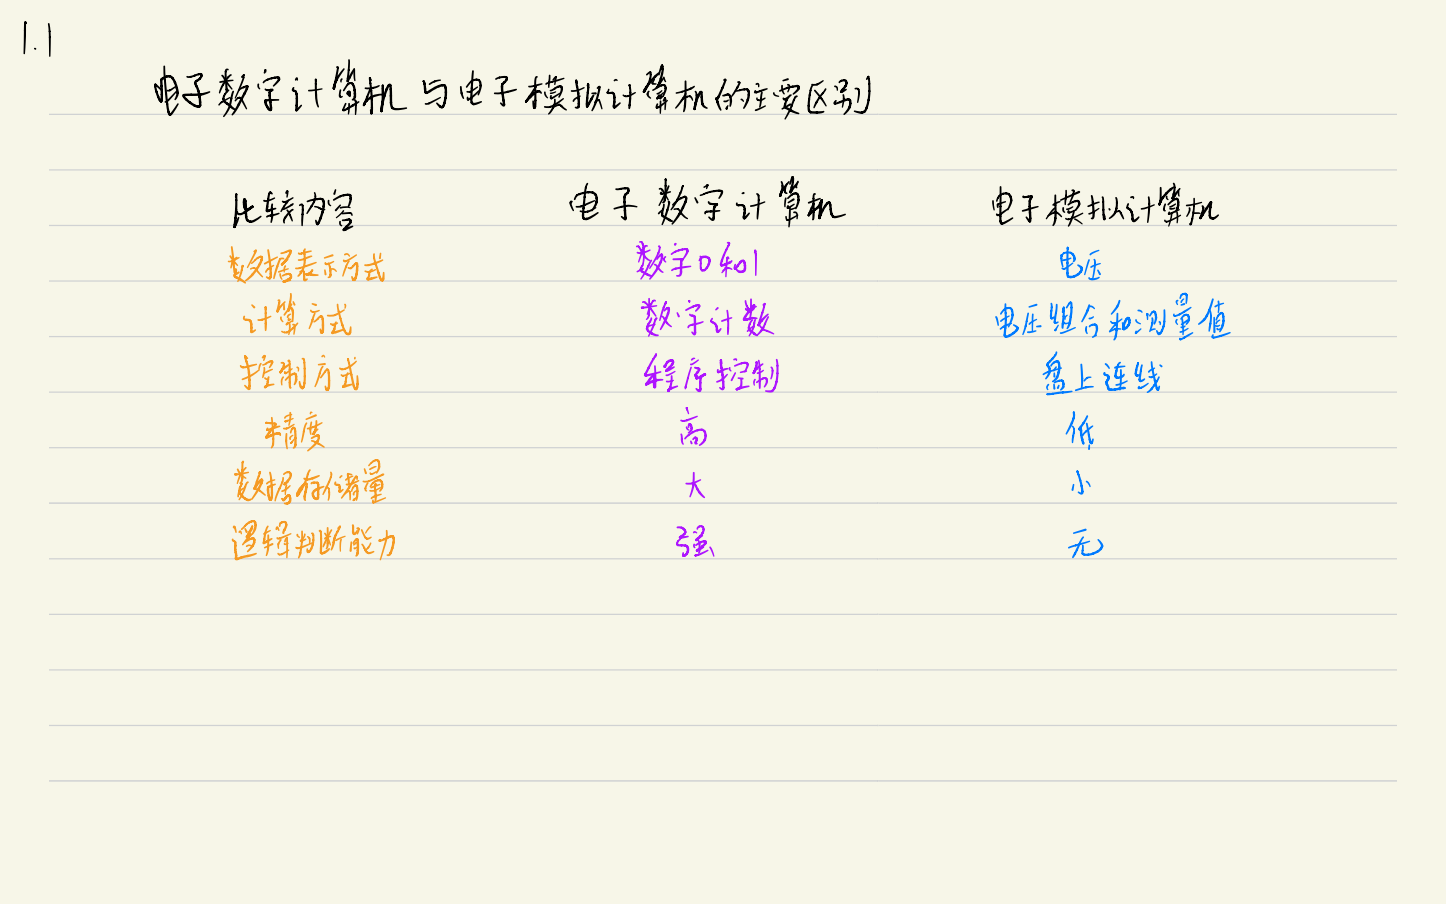 1.1
电子数字计算机与电子模拟计算机的主要区别
比较内容 电子数字计算机 电子模拟计算机
数据表示方式 数字0和1 电压
计算方式 数字计数 电压组合和测量值
控制方式 程序控制 盘上连线
精度 高 低
数据存储量 大 小
逻辑判断能力 强 无